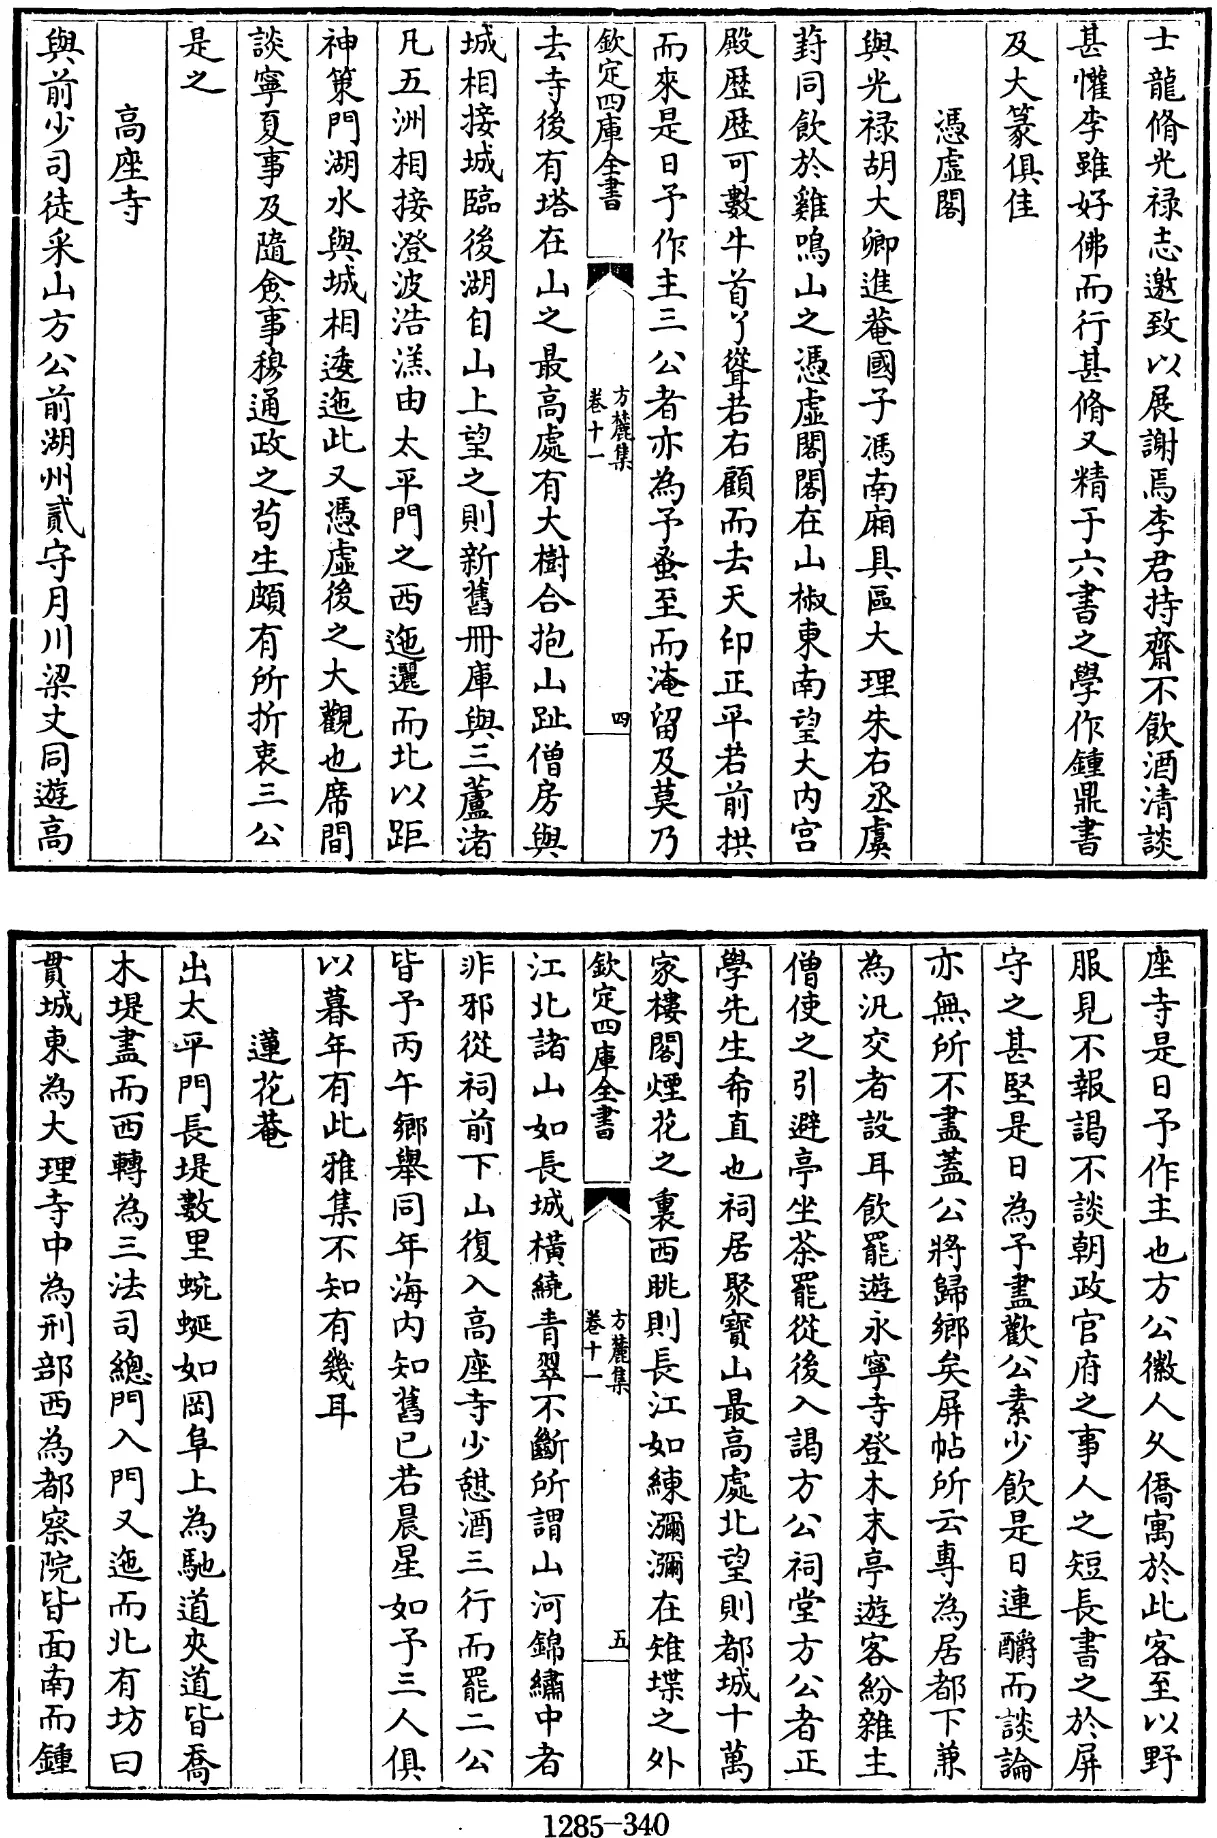 士龍脩光禄志邀致以展謝焉李君持齋不飲酒清談
甚懽李雖好佛而行甚脩又精于六書之學作鍾鼎書
及大篆俱佳
憑虛閣
與光禄胡大卿進菴國子馮南廂具區大理朱右丞虞
葑同飲於雞鳴山之憑虛閣閣在山椒東南望大内宫
殿歴歴可數牛首丫聳若右顧而去天印正平若前拱
而來是日予作主三公者亦為予蚤至而淹留及莫乃
欽定四庫全書
方麓集
卷十一
四
去寺後有塔在山之最高處有大樹合抱山趾僧房與
城相接城臨後湖自山上望之則新舊冊庫與三蘆渚
凡五洲相接澄波浩漾由太平門之西迤邐而北以距
神策門湖水與城相逶迤此又憑虛後之大觀也席間
談寧夏事及隨僉事穆通政之茍生頗有所折衷三公
是之
高座寺
與前少司徒采山方公前湖州貳守月川梁丈同遊高
座寺是日予作主也方公徽人久僑寓於此客至以野
服見不報謁不談朝政官府之事人之短長書之於屏
守之甚堅是日為予盡歡公素少飲是日連釂而談論
亦無所不盡蓋公將歸鄉矣屏帖所云專為居都下兼
為汎交者設耳飲罷遊永寧寺登木末亭遊客紛雜主
僧使之引避亭坐茶罷從後入謁方公祠堂方公者正
學先生希直也祠居聚寶山最高處北望則都城十萬
家樓閣煙花之裏西眺則長江如練瀰瀰在雉堞之外
欽定四庫全書
方麓集
卷十一
五
江北諸山如長城横繞青翠不斷所謂山河錦繡中者
非邪從祠前下山復入高座寺少憇酒三行而罷二公
皆予丙午鄉舉同年海内知舊已若晨星如予三人俱
以暮年有此雅集不知有幾耳
蓮花菴
出太平門長堤數里蜿蜒如岡阜上為馳道夾道皆喬
木堤盡而西轉為三法司總門入門又迤而北有坊曰
貫城東為大理寺中為刑部西為都察院皆面南而鍾
1285-340